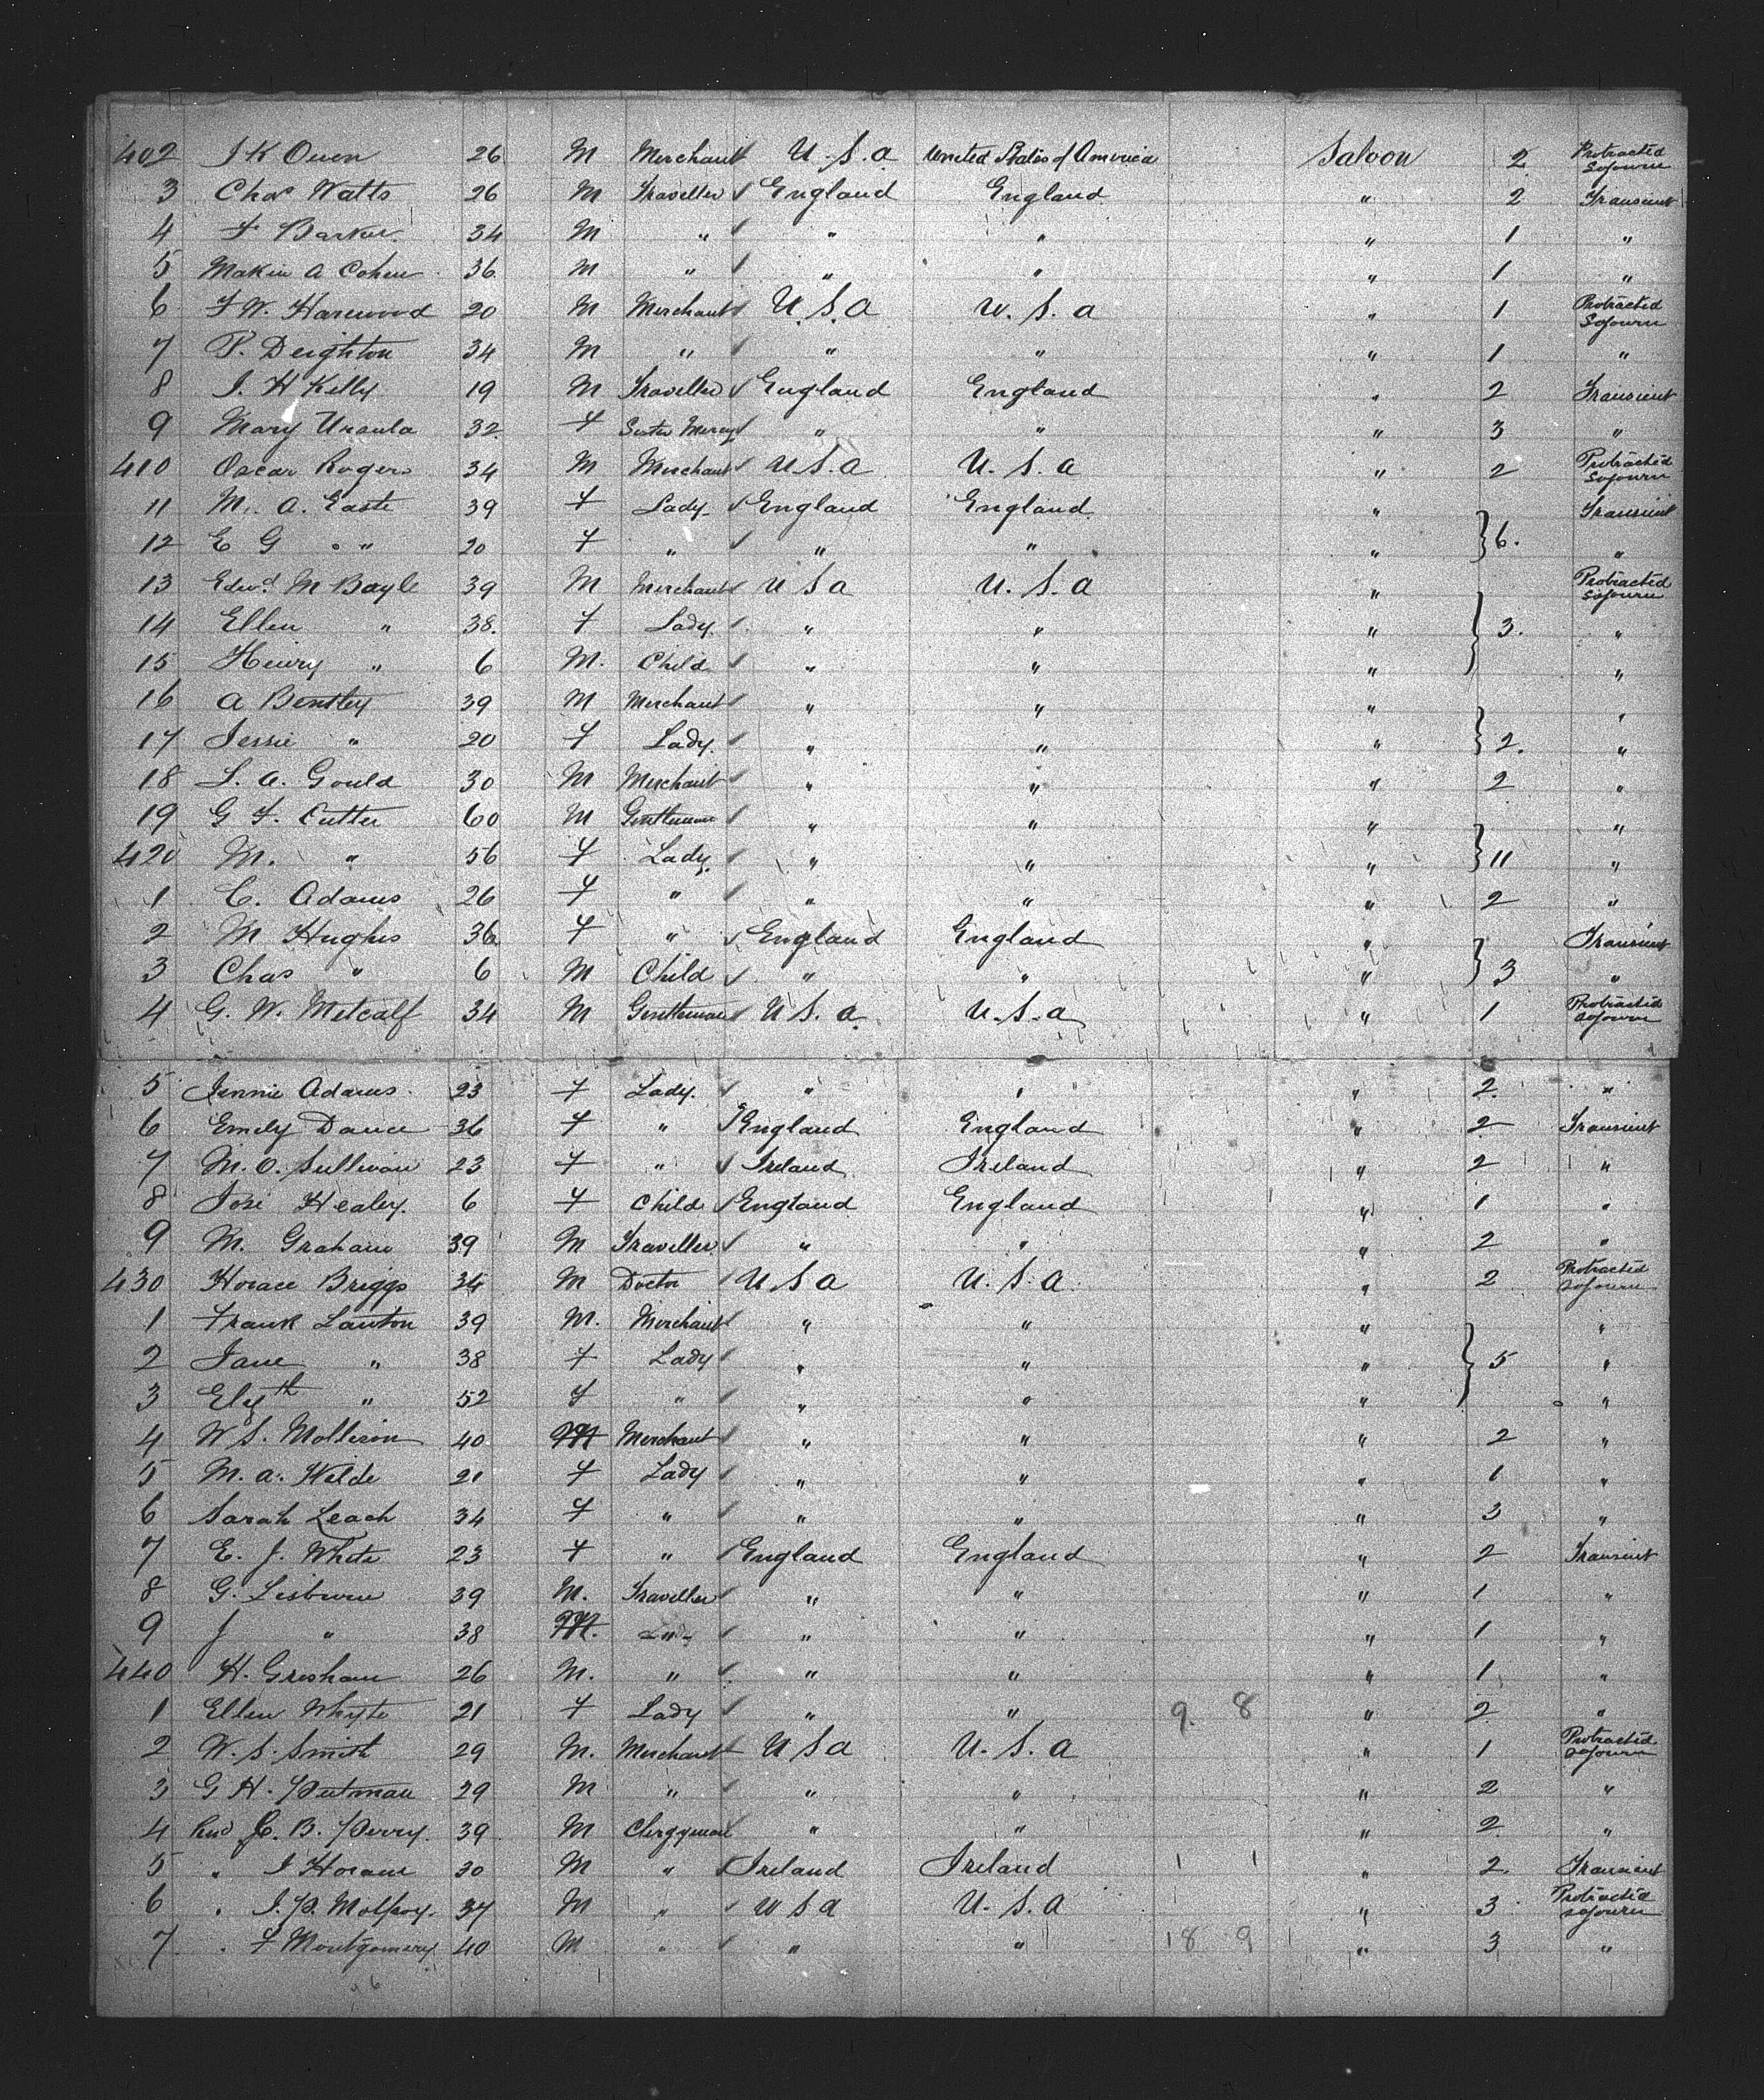 402 J K Owen 26 M Merchant U.S.a United States of America Saloon 2 Protracted Sojourn
3 Chas Watts 26 M Traveller England England " 2 Transient
4 F Barker 34 M " " " " 1 "
5 Makin A Cohen 36 M " " " " 1 "
6 F W. Harewood 20 M Merchant U.S.a U.S.a " 1 Protracted Sojourn
7 P. Deighton 34 M " " " " 1 "
8 J. H Kelly 19 M Traveller England England " 2 Transient
9 Mary Ursula 32 F Sister Mercy " " " 3 "
410 Oscar Rogers 34 M Merchant U.S.a U.S.a " 2 Protracted Sojourn
11 M. A. Easte 39 F Lady England England " Transient
12 E G " 20 F " " " " }6. "
13 Edwd. M Bayle 39 M Merchant U S a U.S.a " Protracted Sojourn
14 Ellen " 38. F Lady. " " " } 3. "
15 Henry " 6 M. Child " " " "
16 A Bentley 39 M Merchant " " " "
17 Jessie " 20 F Lady. " " " } 2. "
18 L. A. Gould 30 M Merchant " " " 2 "
19 G F. Cutter 60 M Gentleman " " " "
420 M. " 56 F Lady. " " " } 11 "
1 C. Adams 26 F " " " " 2 "
2 M Hughes 36 F " England England " Transient
3 Chas " 6 M Child " " " } 3 "
4 G. W. Metcalf 34 M Gentleman U.S.a U.S.a " 1 Protracted Sojourn
5 Jennie Adams 23 F Lady. " " " 2 "
6 Emily Dance 36 F " England England " 2 Transient
7 M. O. Sullivan 23 F " Ireland Ireland " 2 "
8 Josi Healey. 6 F Child England England " 1 "
9 M. Graham 39 M Traveller " " " 2 "
430 Horace Briggs 34 M Doctor U S a U.S.a. " 2 Protracted Sojourn
1 Frank Lawton 39 M. Merchant " " " "
2 Jane " 38 F Lady " " " } 5 "
3 Elyth " 52 F " " " " "
4 W S. Mollison 40 M Merchant " " " 2 "
5 M. a. Wilde 21 F Lady " " " 1 "
6 Sarah Leach 34 F " " " " 3 "
7 E. J. White 23 F " England England " 2 Transient
8 G. Lisburn 39 M. Traveller " " " 1 "
9 J " 38 M. " " " " 1 "
440 H. Gresham 26 M. " " " " 1 "
1 Ellen Whyte 21 F Lady " " 9. 8 " 2 "
2 W. S. Smith 29 M. Merchant U S a U.S.a " 1 Protracted Sojourn
3 G H. Putman 29 M " " " " 2 "
4 Revd J. B. Perry. 39 M Clergyman " " " 2 "
5 " J Horam 30 M " Ireland Ireland 1 1 " 2. Transient
6 " J. P. Molfroy. 34 M " U S a U.S.a " 3 Protracted Sojourn
7 " F Montgomery 40 M " " " 18 9 " 3 "